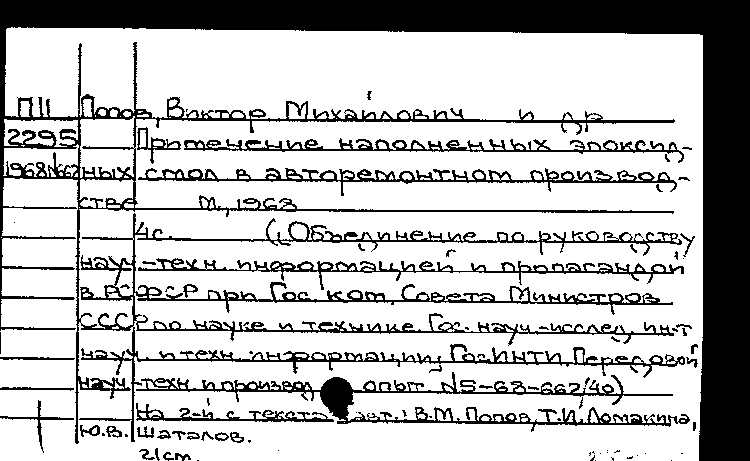 ПII Попов, Виктор Михайлович и др
2295 Применение наполненных эпоксид-
1968№662 ных смол в авторемонтном производ-
стве М., 1968
4с. („Объединение по руководству
науч.-техн. информацией и пропагандой
в РСФСР при Гос. ком. Совета Министров
СССР по науке и технике Гос. науч.-исслед. ин-т
науч. и техн. информации, ГосИНТИ. Передовой
науч.-техн. и производ опыт. №5-68-662/40)
На 2-й с текста авт.: В.М. Попов, Т.И. Ломакина,
Ю.В. Шаталов.
21см.